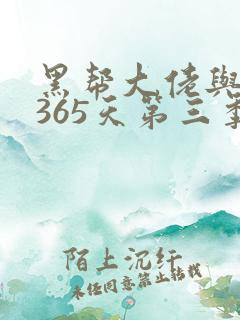 黑帮大佬与
365天第三季
陌上沉纤
未经同意禁止转载